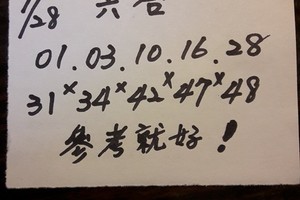 1/28 六合
01.03.10.16.28
31×34×42×47×48
參考就好!